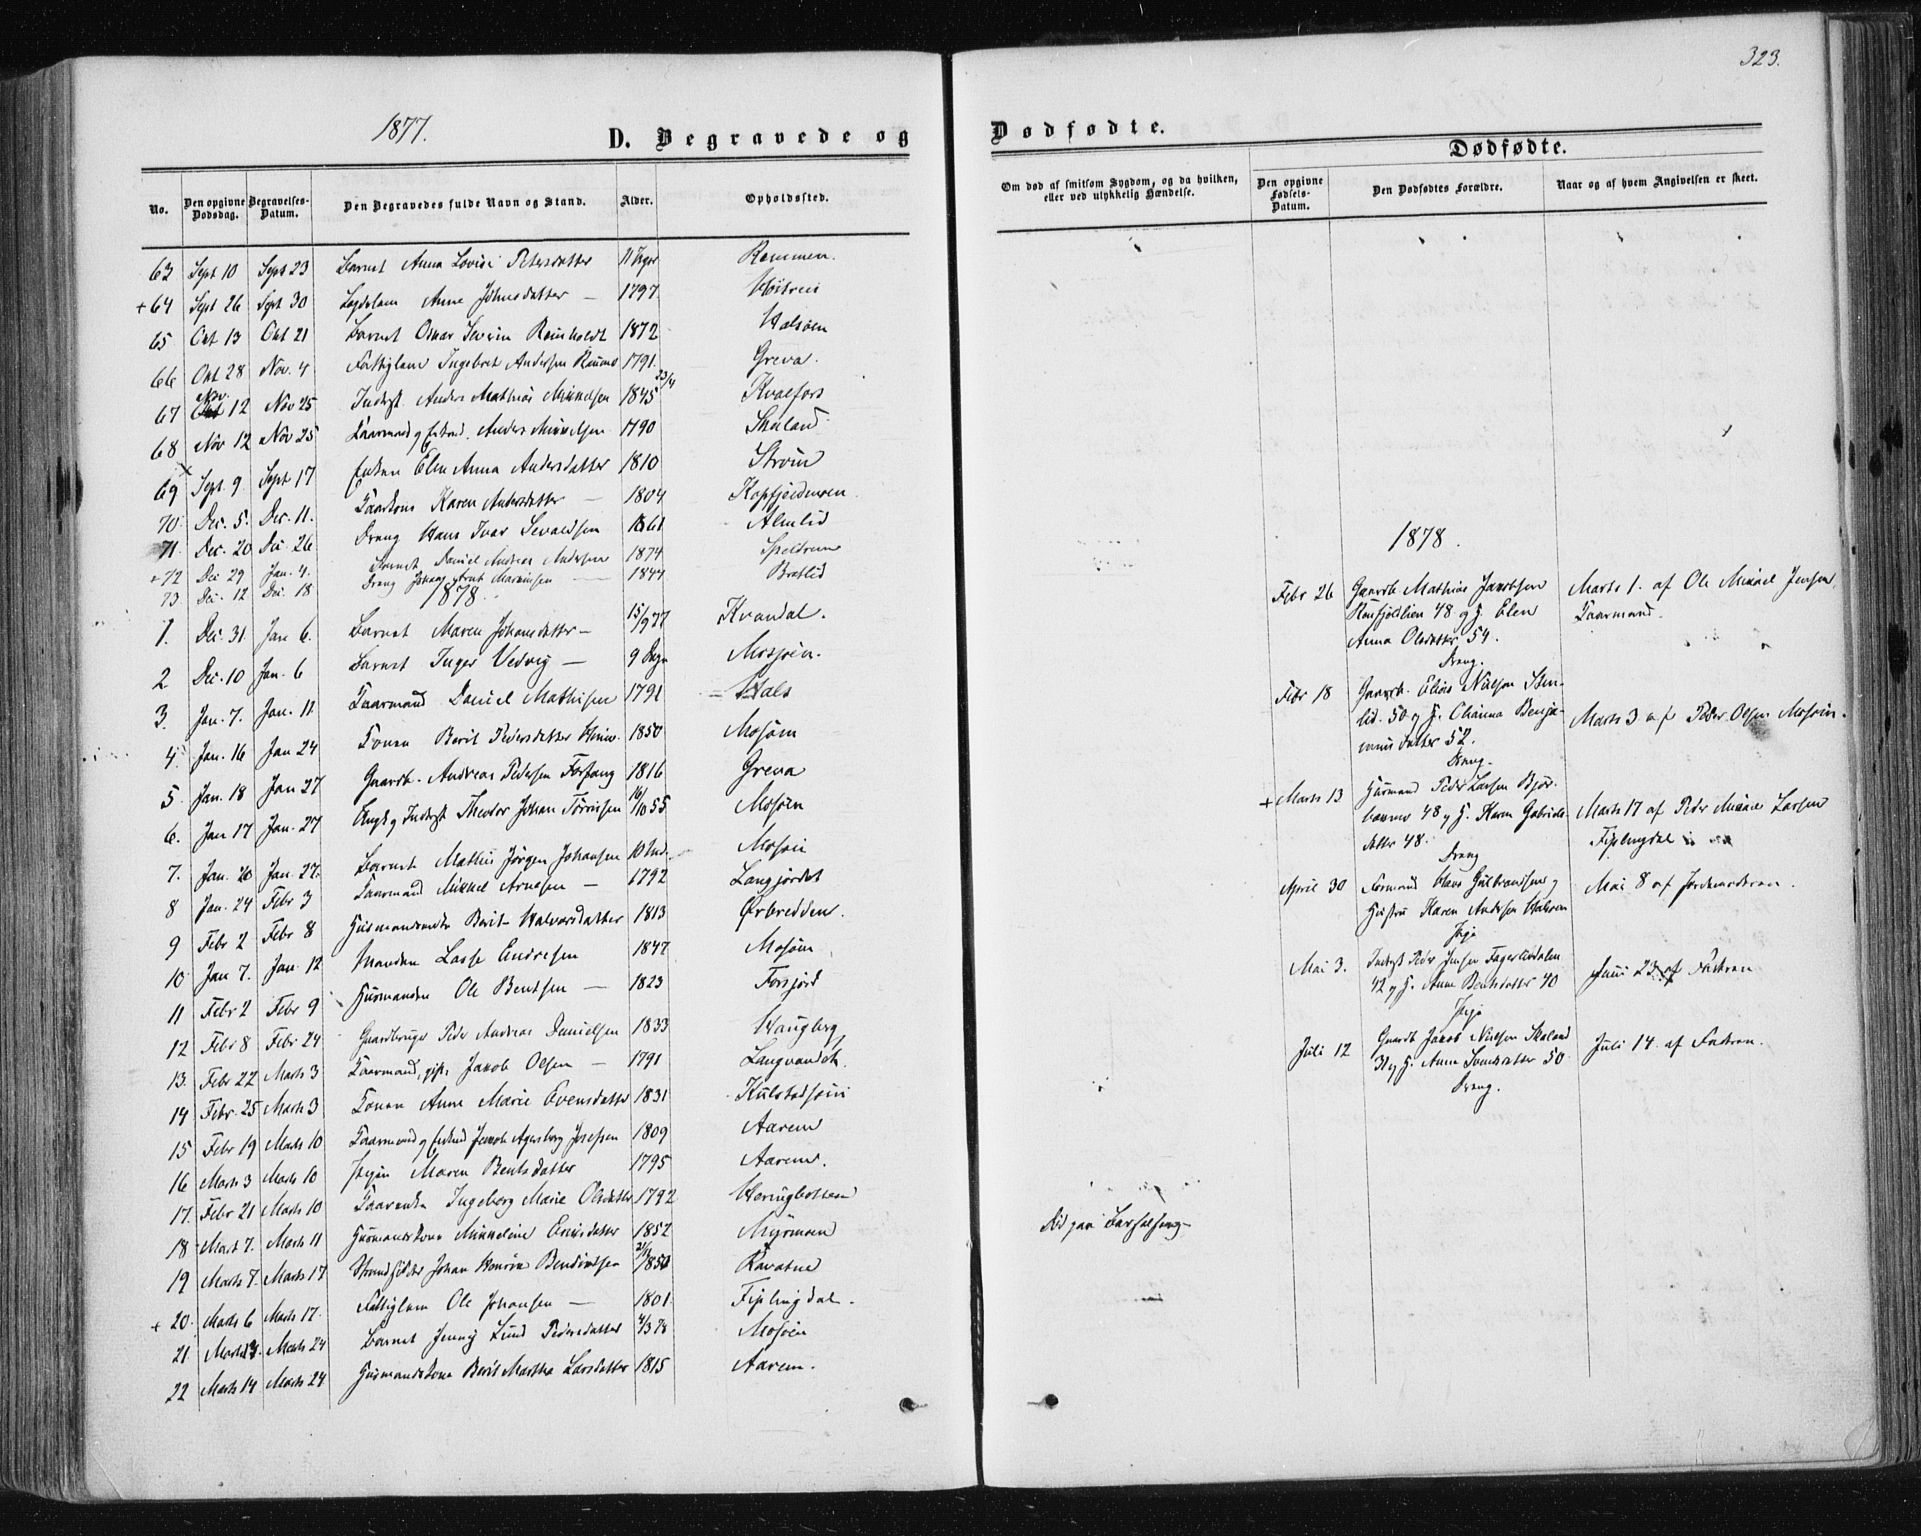 323.
1877.
D. Begravede og Dødfødte.
No. Den opgivne Dødsdag. Begravelses-Datum. Den Begravedes fulde Navn og Stand. Alder. Opholdssted.
63 Sept 10 Sept 23 Barnet Anna Lovise Petersdatter 11 Dage Remmen.
+ 64 Sept 26 Sept 30 Lægdslem Anne Johnsdatter – 1797
65 Okt 13 Okt 21 Barnet Oskar Severin Reinholdt 1872 Halsøen
66 Okt 28 Nov. 4 Fattiglem Ingebret Andersen 1791. Greva.
67 Nov. 12 Nov 25 Inderst Anders Mathias Mikkelsen 1845 23/4 Kvalfors
68 Nov 12 Nov 25 Kaarmand og Enkem. Anders Mikkelsen 1790 Skaland
69 Sept. 9 Sept 17 Enken Elen Anna Andersdatter 1810 Strøm
70 Dec. 5. Dec. 11. Kaarkone Karen Andersdatter – 1804 Kapfjeldmoen
71 Dec. 20 Dec. 26 Dreng Hans Ivar Sevaldsen 1861 Almlid
+ 72 Dec 29 Jan. 4. Barnet Daniel Andreas Andersen 1874
73 Dec. 12 Dec. 18 Dreng Johan Arnt Martinsen – 1844 Bratlid
1878.
1. Dec. 31 Jan 6. Barnet Maren Johansdatter – 15/9 77 Kvandal.
2 Dec. 10 Jan. 6 Barnet Inger Vedvig – 9 Dage Mosjøen.
3. Jan. 7. Jan. 11 Kaarmand Daniel Mathisen 1791 – Hals
4. Jan. 16 Jan 24 Konen Berit Pedersdatter 1850 Mosøen
5 Jan. 18 Jan 27 Gaardb. Andreas Pedersen Forfang 1816 Greva
6. Jan 17 Jan. 27 Ungk. og Inderst Theodor Johan Tørrissen 16/10 55 Mosøen
7. Jan. 20 Jan. 27. Barnet Mathis Jørgen Johansen Mosøen
8 Jan. 24 Febr 3 Kaarmand Mikkel Arnesen – 1792 Langjordet
9 Febr 2 Febr 8 Husmandsenke Berit Halvorsdatter 1813 Ørbredden.
10 Jan 7. Jan. 12 Manden Lasse Endresen 1847 Mosøen
11 Febr 2 Febr 9 Husmanden Ole Bentsen – 1823 Forsjord
12 Febr 8 Febr 24 Gaardbruger Peder Andreas Danielsen 1833 Haugberg
13. Febr 22 Marts 3 Kaarmand, gift, Jakob Olsen – 1791 Langvandet.
14 Febr. 25 Marts 3 Konen Anne Marie Evensdatter 1831 Kulstadsjøen
15 Febr 19 Marts 10 Kaarmand og Enkem. Jakob Agersborg Josefsen 1809 Aarem
16 Marts 3 Marts 10 Pigen Maren Bentsdatter 1795 Aarem.
17. Febr 21 Marts 10 Kaarenke Ingeborg Marie Olsdatter 1792
18 Mart 7. Marts 11 Husmandskone Mikkeline Eriksdatter 1852 Myrmoen
19 Marts 7. Marts 17 Strandsidder Johan Henrik Bendiktsen Ravatne
+ 20. Marts 6 Marts 17. Fattiglem Ole Johansen – 1801 Fiplingdal.
21 Marts 13. Marts 24 Barnet Jenny Lund Pedersdatter 4/3 78 Mosøen
22 Marts 14 Marts 24 Husmandskone Berit Martha Larsdatter 1815 Aarem.
Om død af smitsom Sygdom, og da hvilken, eller ved ulykkelig Hændelse.
Død paa Barselseng
Dødfødte.
Den opgivne Fødsels-Datum. Den Dødfødtes Forældre. Naar og af hvem Angivelsen er skeet.
1878.
Febr 26 Gaardb Mathias Jakobsen
48 og H. Elen
Anna Olsdatter 54.
Dreng.
Marts 1. af Ole Mikael Jensen
Kaarmand.
Febr 18 Gaardb. Elias Nielsen Sten-
lid. 50 og H. Channa Benja-
minsdatter 52.
Dreng.
Marts 3 af Peder Olsen Mosøen.
+ Marts 13 Husmand Peder Larsen Bjør-
48 og H. Karen Gabriels-
datter 48.
Dreng
Marts 17 af Peder Mikael Larsen
Fiplingdal
April 30 Formand Hans Gulbrandsen og
Hustru Karen Andersen Halsøen
Pige
Mai 8 af Jordemoderen.
Mai 3. Inderst Peder Jensen Fagerlidalen
42 og H. Anne Bentsdatter 40
Pige
Juni 23 af Faderen
Juli 12 Gaardb Jakob Nielsen Skaland
31 og H. Anne 50
Dreng.
Juli 14. af Faderen.